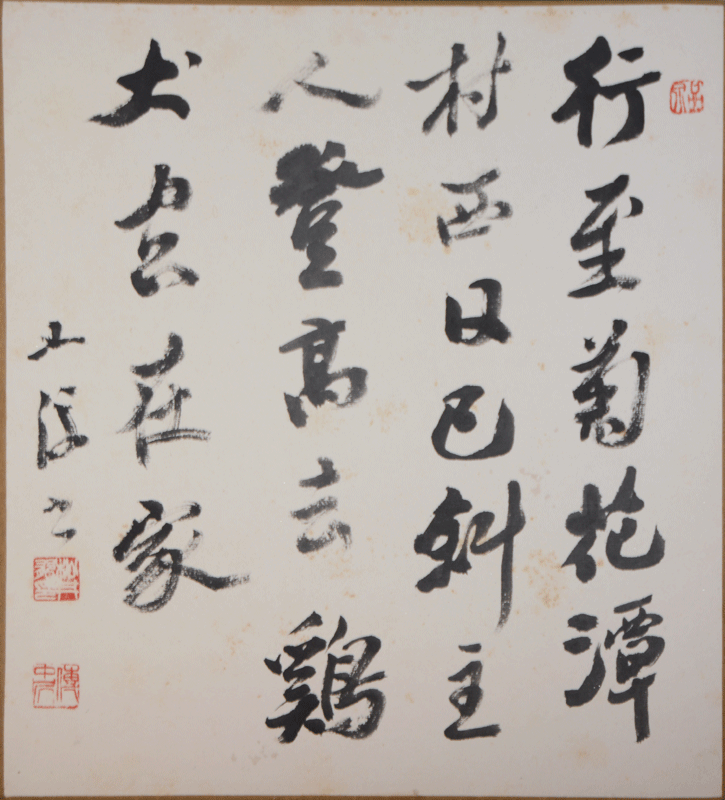 行至菊花潭
村西日已斜主
人登高去鷄
犬空在家